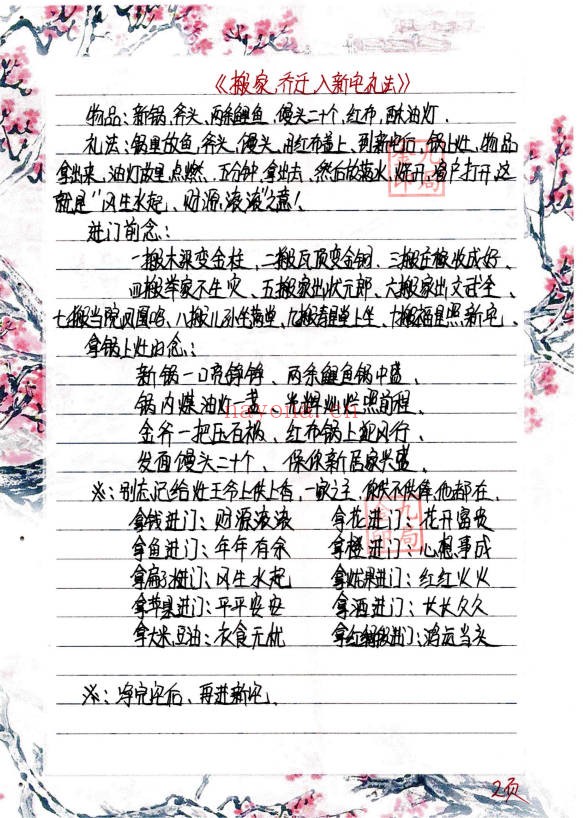 《搬家、乔迁入新宅礼法》
物品：新锅、斧头、两条鲤鱼、馒头二十个、红布、酥油灯.
礼法：锅里放鱼、斧头、馒头、用红布盖上、到新宅后、锅上灶、物品
拿出来、油灯放里点燃、五分钟、拿出去、然后放满水、烧开、窗户打开、这
就是"风生水起、财源滚滚"之意!
进门前念：
一搬木梁变金柱、二搬瓦顶变金钢、三搬庄稼收成好、
四搬举家不生灾、五搬家出状元郎、六搬家出文武全、
七搬当院凤凰鸣、八搬儿孙坐满堂、九搬 上坐、十搬福星照新宅、
拿锅上灶台念：
新锅一口亮铮铮、两条鲤鱼锅中盛、
锅内煤油灯一盏、光辉灿烂照前程、
金斧一把压石板、红布锅上起风行、
发面馒头二十个、保你新居家兴盛、
※：别忘记给灶王爷上供上香、一家之主、你供不供他都在、
拿钱进门：财源滚滚 拿花进门：花开富贵
拿鱼进门：年年有余 拿橙进门：心想事成
拿扇子进门：风生水起 拿炭火进门：红红火火
拿苹果进门：平平安安 拿酒进门：长长久久
拿大米豆油：衣食无忧 拿红 进门：鸿运当头
※：净完宅后、再进新宅、
2页
九局
金印
九局
金印
nayona.cn